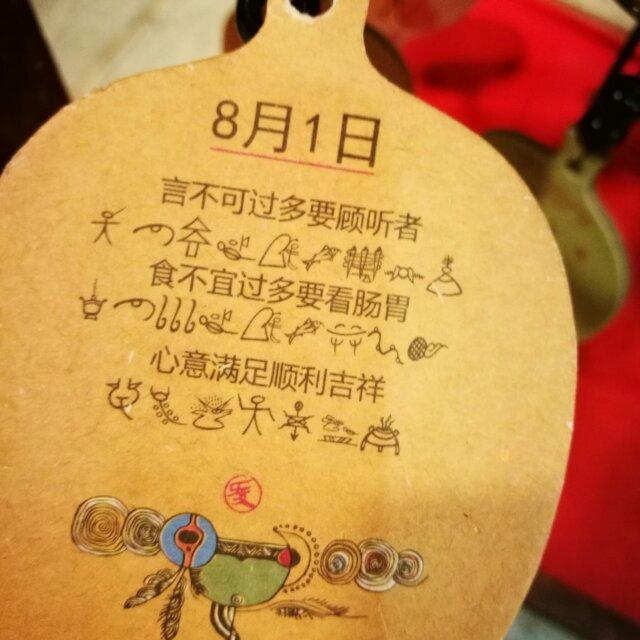 8月1日
言不可过多要顾听者
食不宜过多要看肠胃
心意满足顺利吉祥